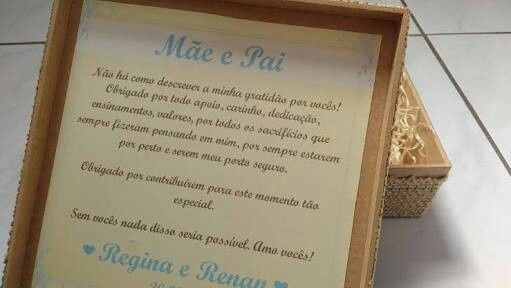 Mãe e Pai
Não há como descrever a minha gratidão por vocês!
Obrigado por todo apoio, carinho, dedicação,
ensinamentos, valores, por todos os sacrifícios que
sempre fizeram pensando em mim, por sempre estarem
por perto e serem meu porto seguro.
Obrigado por contribuírem para este momento tão
especial.
Sem vocês nada disso seria possível. Amo vocês!
Regina e Renan